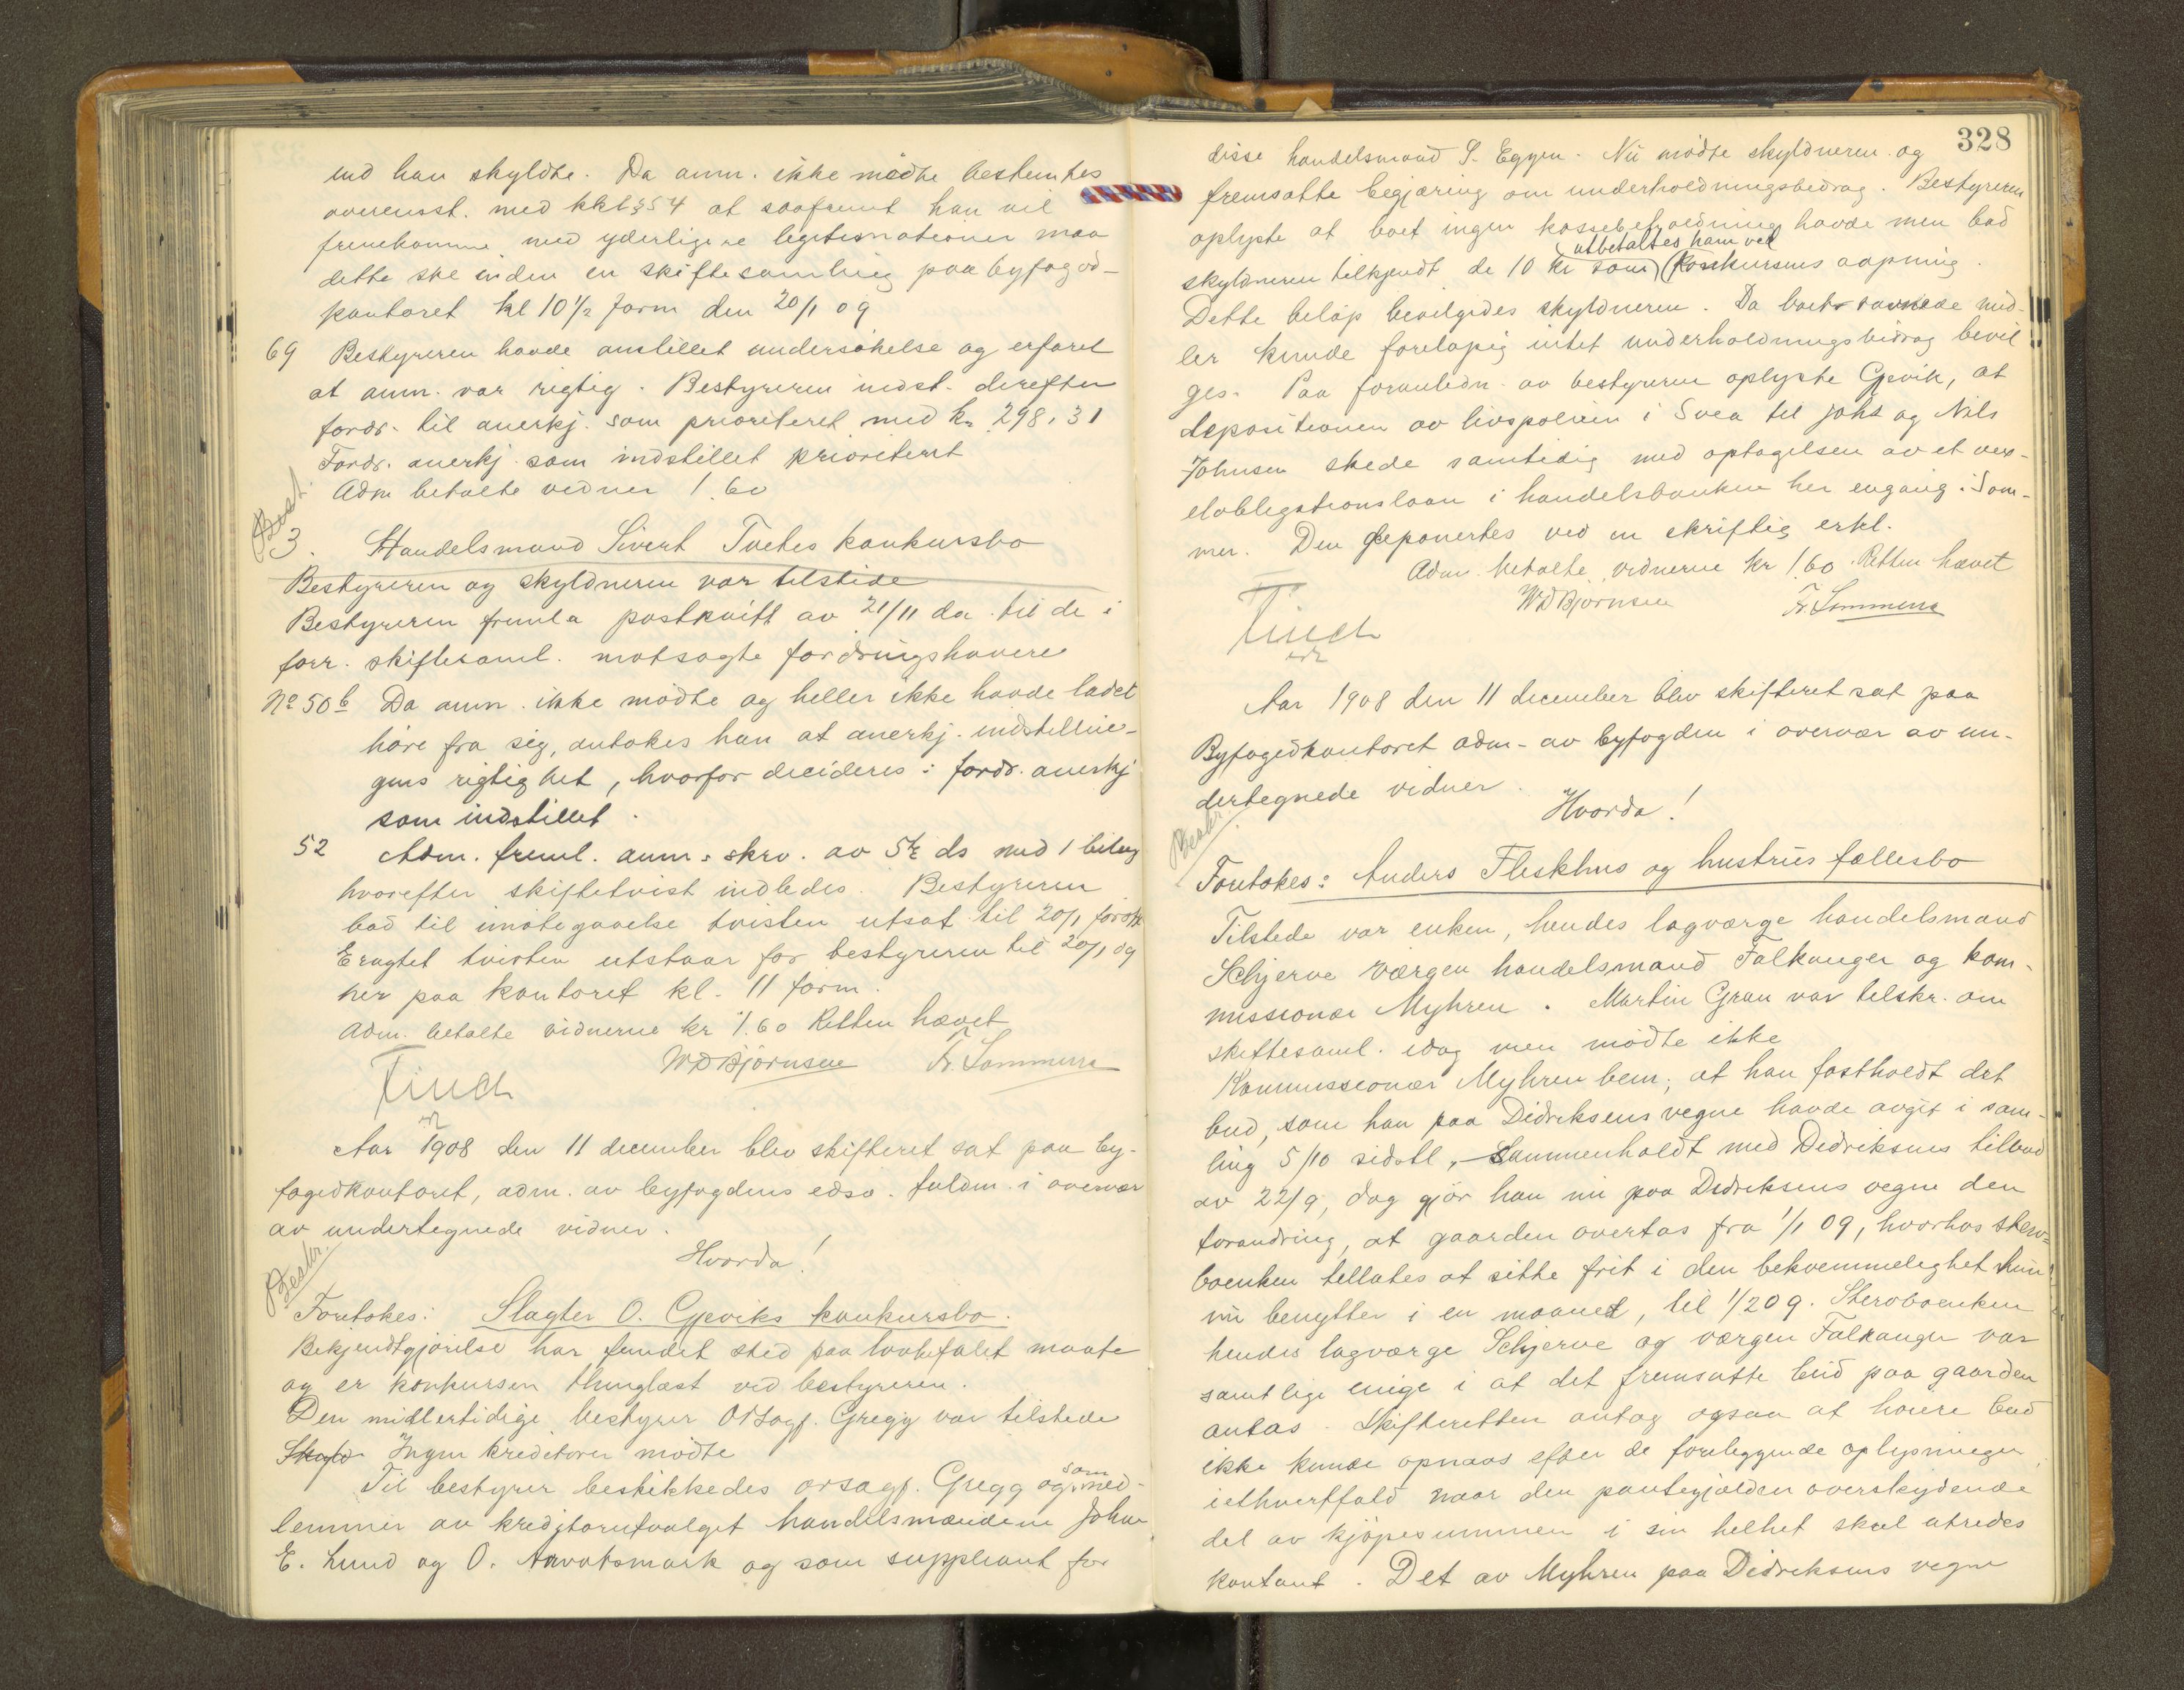 ind han skyldte. Da anm. ikke mødte bestemtes
overensst. med kkl § 54 at saafremt han vil
fremkomme med yderligere legitimationer maa
dette ske inden en skiftesamling paa byfoged-
kontoret kl 10 1/2 form den 20/1 09
69 Bestyreren havde anstillet undersøkelse og erfaret
at anm. var rigtig. Bestyreren indst. derefter
fordr. til anerkj. som prioriteret med kr 298,31
Fordr. anerkj. som indstillet prioritert
Adm betalte vidner 1.60
3. Handelsmand Sivert Tvetes konkursbo
Bestyreren og skyldneren var tilstede
Bestyreren freml a postkvitt av 21/11 da til de i
forr. skiftesaml. motsagte fordringshavere
No 50 b Da anm. ikke mødte og heller ikke havde ladet
høre fra sig, antokes han at anerkj. indstillin-
gens rigtighet, hvorfor decideres: fordr. anerkj
som indstillet.
52 Adm. freml. anm: skrv. av ds med 1 bilag
hvorefter skiftetvist indledes. Bestyreren
bad til imøtegaaelse tvisten utsat til 20/1 førstk
Eragtet tvisten utstaar for bestyreren til 20/1 09
her paa kontoret kl. 11 form.
Adm. betalte vidnerne kr 1.60 Retten hævet
Finch WDBjörnsen Fr. Lommerse
Aar 1908 den 11 december blev skifteret sat paa by-
fogedkontoret, adm. av byfogdens edsv. fuldm. i overvær
av undertegnede vidner.
Hvorda!
Beskr.
Foretokes: Slagter O. Gjeviks konkursbo.
Bekjendtgjørelse har fundet sted paa lovbefalet maate
og er konkursen thinglæst ved bestyreren.
Den midlertidige bestyrer O.r.sagf. Gregg var tilstede
Skyld Ingen kreditorer mødte
Til bestyrer beskikkedes orsagf. Gregg og som med-
lemmer av kreditorutvalget handelsmændene Johan
E. Lund og O. Arvotsmark og som suppleant for
328
disse handelsmand S. Eggen. Nu mødte skyldneren og
fremsatte begjæring om underholdningsbidrag. Bestyreren
oplyste at boet ingen kassebeholdning havde men bad
utbetaltes ham ved
skyldneren tilkjendt de 10 kr som konkursens aapning.
Dette beløp bevilgedes skyldneren. Da boet savnede mid-
ler kunde foreløpig intet underholdningsbidrag bevil
ges. Paa foranledn. av bestyreren oplyste Gjevik, at
depositionen av livspolicen i Svea til Johs og Nils
Johnsen skede samtidig med optagelsen av et vex-
elobligationslaan i handelsbanken her engang i som-
mer. Den deponertes ved en skriftlig erkl.
Adm. betalte vidnerne kr 1.60. Retten hævet
WDBjörnsen Fr. Lommerse
Finch
Aar 1908 den 11 december blev skifteret sat paa
Byfogedkontoret adm. av byfogden i overvær av un-
dertegnede vidner.
Hvorda!
Beskr.
Foretokes: Anders Fleskhus og hustrus fællesbo
Tilstede var enken, hendes lagværge handelsmand
Schjerve værgen handelsmand Falkanger og kom-
missionær Myhren. Martin Gran var tilskr. om
skiftesaml. idag men mødte ikke
Kommissionær Myhren bem. at han fastholdt det
bud, som han paa Didriksens vegne havde avgit i sam-
ling 5/10 sidstl, - Sammenholdt med Didriksens tilbud
av 22/9, dog gjør han nu paa Didriksens vegne den
forandring, at gaarden overtas fra 1/1 09, hvorhos sterv-
boenken tillates at sitte frit i den bekvemmelighet hun
nu benytter i en maaned, til 1/2 09. Stervboenken
hendes lagværge Schjerve og værgen Falkanger var
samtlige enige i at det fremsatte bud paa gaarden
antas. Skifteretten antog ogsaa at høiere bud
ikke kunde opnaaes efter de foreliggende oplysninger
iethvertfald naar den pantegjælden overskydende
del av kjøpesummen i sin helhet skal utredes
kontant. Det av Myhren paa Didriksens vegne